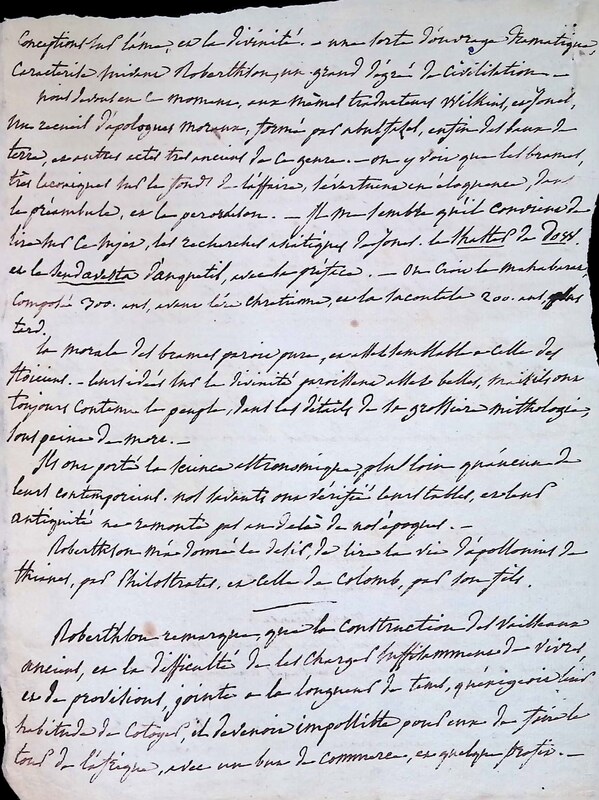 conceptions sur l'âme, et la divinité. – une sorte d'ouvrage dramatique,
caractérise suivant Roberthson, un grand dégré de civilisation –
nous devons en ce moment, aux mêmes traducteurs Wilkins, et Jones,
un recueil d'apologues moraux, formé par abulfasel, enfin des baux de
terre, et autres actes tres anciens de ce genre. – on y voit que les brames,
très laconiques sur le fond de l'affaire, s'évertuent en éloquence, dans
le préambule, et la peroraison. – Il me semble qu'il convient de
lire sur ce sujet, les recherches asiatiques de Jones. le Shasta de Dow.
et le Zendavesta d'anquetil, avec la préface. – On croit le mahabarat,
composé 300. ans, avant l'ère chretienne, et la sacontala 200. ans plus
tard.
la morale des brames paroit pure, et assez semblable a celle des
stoiciens. – leurs idées sur la divinité paroissent assez belles, mais ils ont
toujours contenu le peuple, dans les détails de sa grossiere mithologie,
sous peine de mort. –
Ils ont porté la science astronomique, plus loin qu'aucun de
leurs contemporains. nos savants ont vérifié leurs tables, et leur
antiquité ne remonte pas au delà de nos époques. –
Roberthson m'a donné le desir, de lire la vie d'apollonius de
thianes, par Philostrates, et celle de Colomb, par son fils.
Roberthson remarque, que la construction des vaisseaux
anciens, et la difficulté de les charger suffisamment de vivres
et de provisions, jointe a la longueur de tems, qu'exigeoit leur
habitude de cotoyer, il devenoit impossible pour eux de faire le
tour de l'afrique, avec un but de commerce, et quelque profit. –